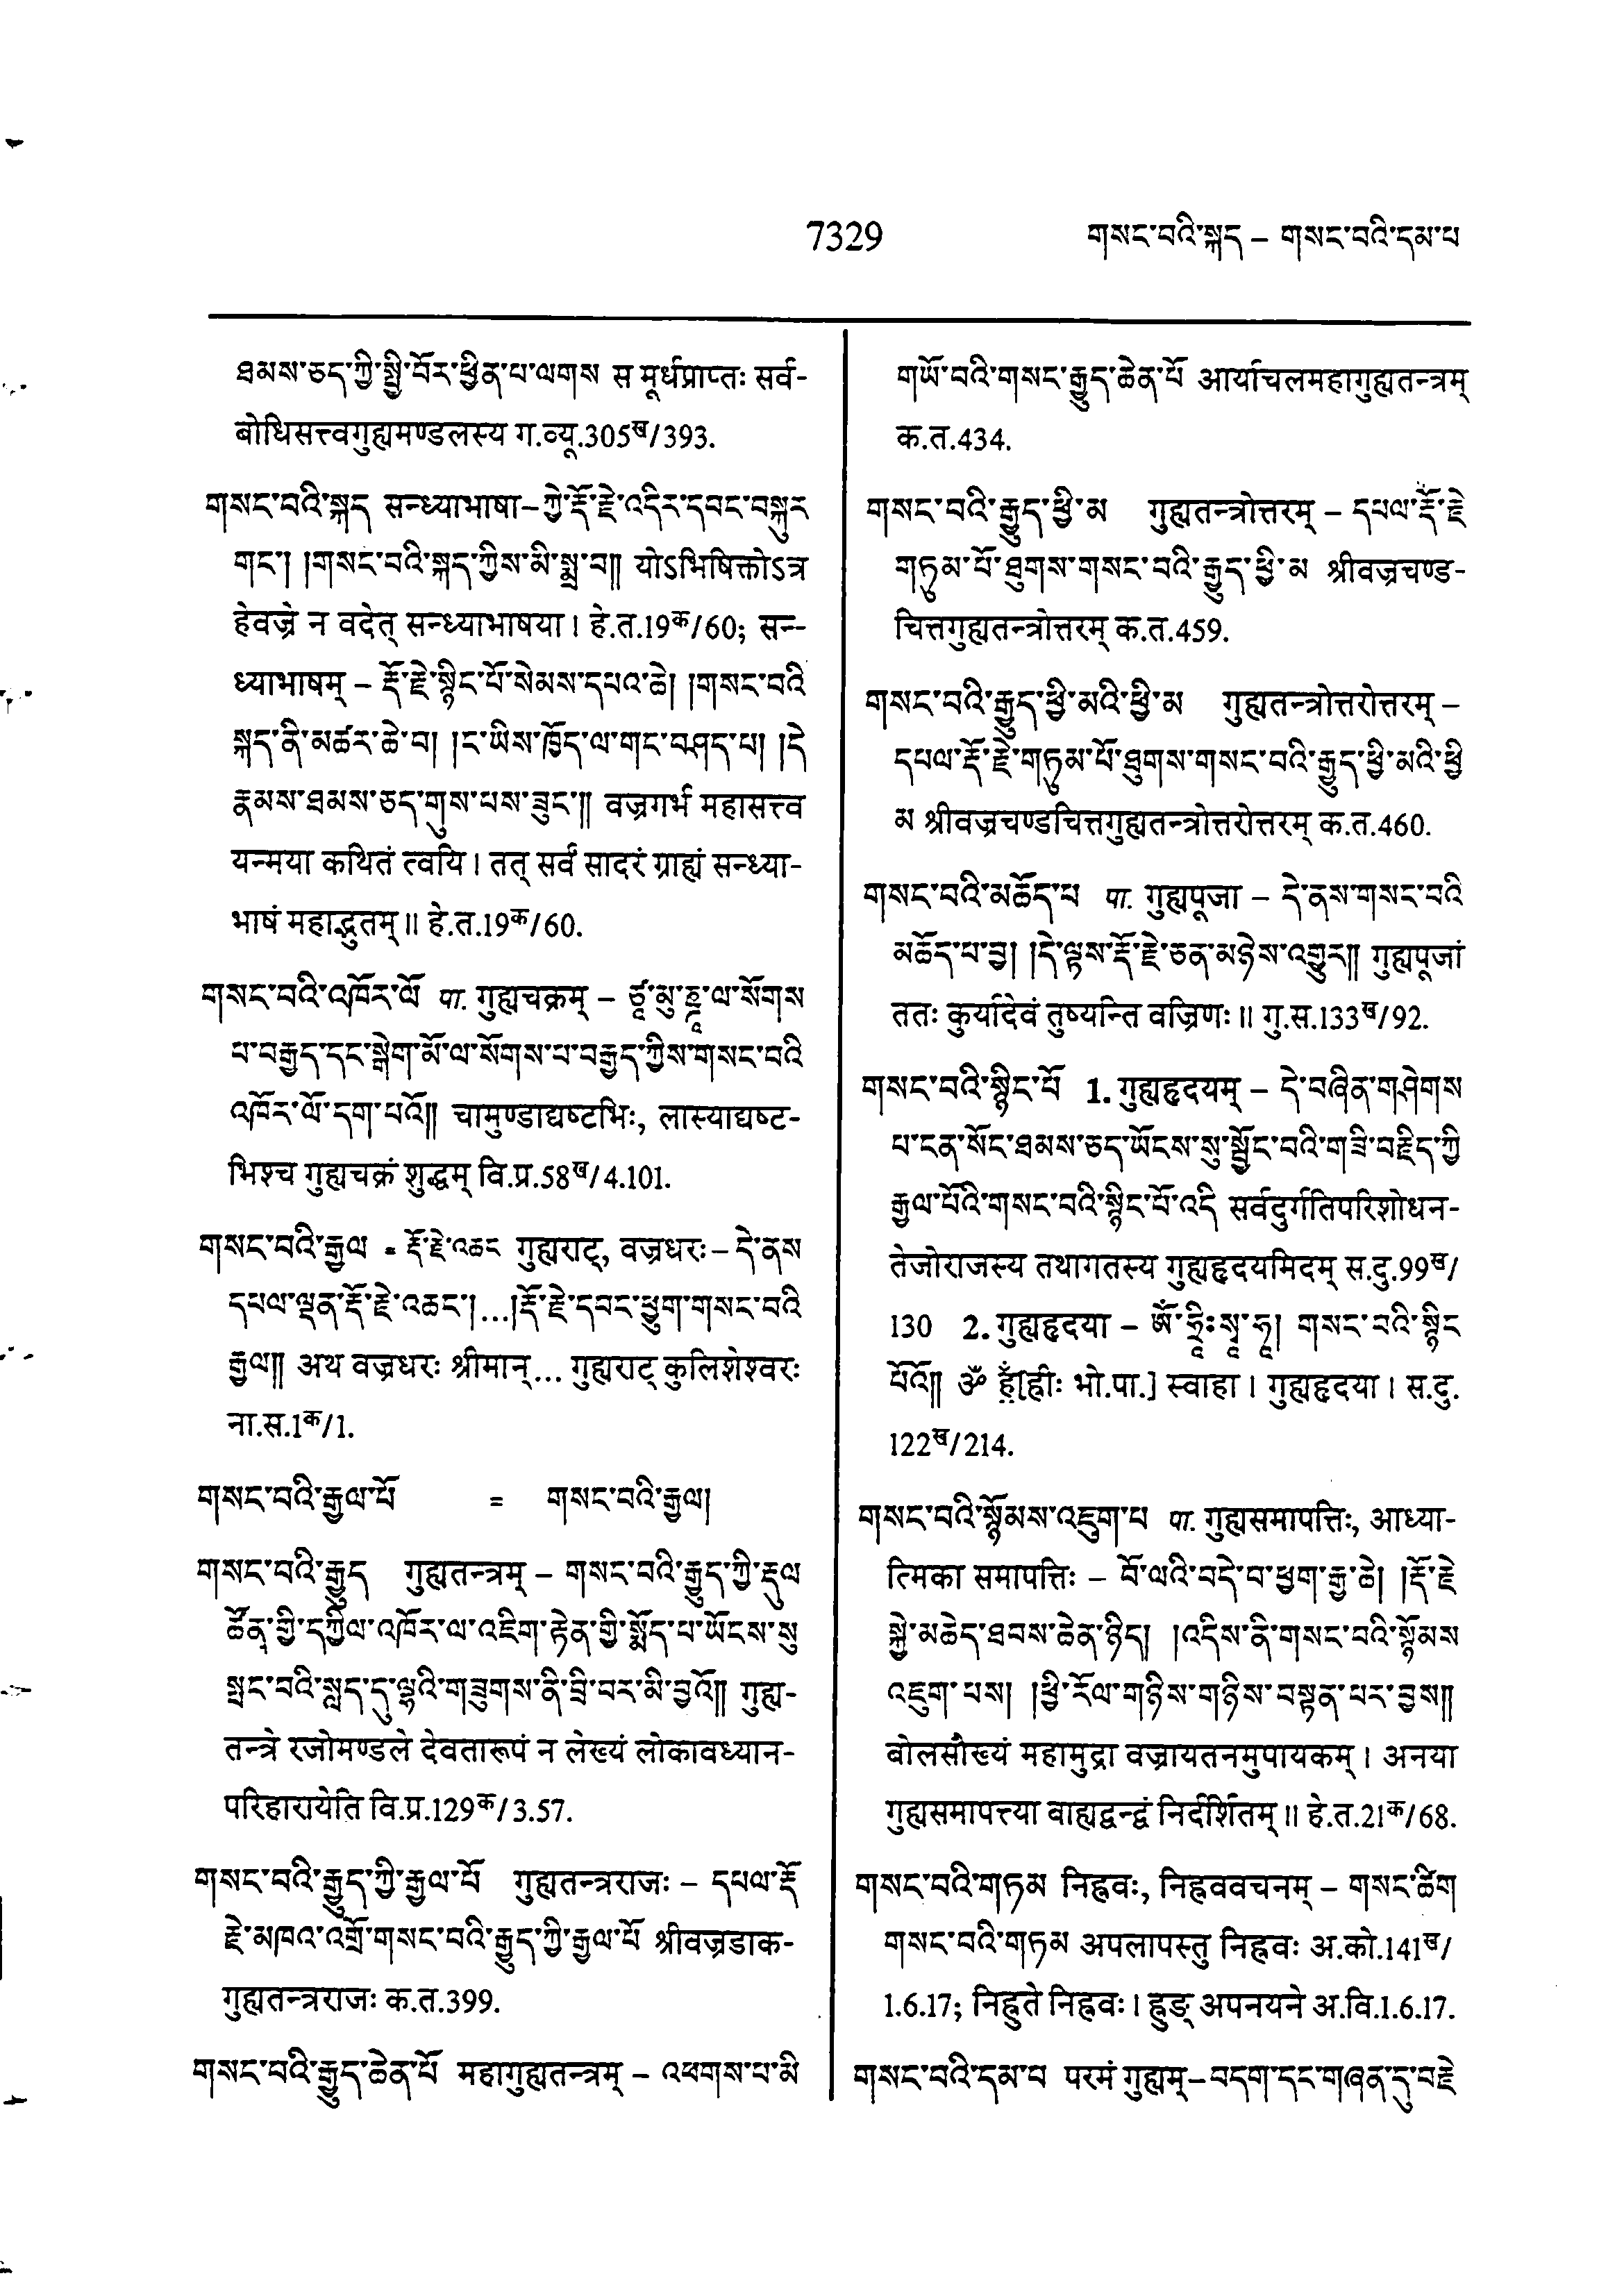 7329 གསང་བའི་སྐད – གསང་བའི་དམ་པ
ཐམས་ཅད་ཀྱི་སྤྱི་བོར་ཕྱིན་པ་ལགས स मूर्धप्राप्तः सर्व-
बोधिसत्त्वगुह्यमण्डलस्य ग.व्यू.305ख/393.
གསང་བའི་སྐད सन्ध्याभाषा–ཀྱེ་རྡོ་རྗེ་འདིར་དབང་བསྐུར
གང་། །གསང་བའི་སྐད་ཀྱིས་མི་སྨྲ་བ།། योऽभिषिक्तोऽत्र
हेवज्रे न वदेत् सन्ध्याभाषया। हे.त.19क/60; सन्-
ध्याभाषम् – རྡོ་རྗེ་སྙིང་པོ་སེམས་དཔའ་ཆེ། །གསང་བའི
སྐད་ནི་མཚར་ཆེ་བ། །ང་ཡིས་ཁྱོད་ལ་གང་བཤད་པ། །དེ
རྣམས་ཐམས་ཅད་གུས་པས་ཟུང་།། वज्रगर्भ महासत्त्व
यन्मया कथितं त्वयि। तत् सर्वं सादरं ग्राह्यं सन्ध्या-
भाषं महाद्भुतम्॥ हे.त.19क/60.
གསང་བའི་འཁོར་ལོ पा. गुह्यचक्रम् – ཙཱ་མུ་ཎྜཱ་ལ་སོགས
པ་བརྒྱད་དང་སྒེག་མོ་ལ་སོགས་པ་བརྒྱད་ཀྱིས་གསང་བའི
འཁོར་ལོ་དག་པའོ།། चामुण्डाद्यष्टभिः, लास्याद्यष्ट-
भिश्च गुह्यचक्रं शुद्धम् वि.प्र.58ख/4.101.
གསང་བའི་རྒྱལ = རྡོ་རྗེ་འཆང गुह्यराट्, वज्रधरः– དེ་ནས
དཔལ་ལྡན་རྡོ་རྗེ་འཆང་།...།རྡོ་རྗེ་དབང་ཕྱུག་གསང་བའི
རྒྱལ།། अथ वज्रधरः श्रीमान्... गुह्यराट् कुलिशेश्वरः
ना.स.1क/1.
གསང་བའི་རྒྱལ་པོ = གསང་བའི་རྒྱལ།
གསང་བའི་རྒྱུད गुह्यतन्त्रम् – གསང་བའི་རྒྱུད་ཀྱི་རྡུལ
ཚོན་གྱི་དཀྱིལ་འཁོར་ལ་འཇིག་རྟེན་གྱི་སྨོད་པ་ཡོངས་སུ
སྤང་བའི་སླད་དུ་ལྷའི་གཟུགས་ནི་བྲི་བར་མི་བྱའོ།། गुह्य-
तन्त्रे रजोमण्डले देवतारूपं न लेख्यं लोकावध्यान-
परिहारायेति वि.प्र.129क/3.57.
གསང་བའི་རྒྱུད་ཀྱི་རྒྱལ་པོ गुह्यतन्त्रराजः – དཔལ་རྡོ
རྗེ་མཁའ་འགྲོ་གསང་བའི་རྒྱུད་ཀྱི་རྒྱལ་པོ श्रीवज्रडाक-
गुह्यतन्त्रराजः क.त.399.
གསང་བའི་རྒྱུད་ཆེན་པོ महागुह्यतन्त्रम् – འཕགས་པ་མི
གཡོ་བའི་གསང་རྒྱུད་ཆེན་པོ आर्याचलमहागुह्यतन्त्रम्
क.त.434.
གསང་བའི་རྒྱུད་ཕྱི་མ गुह्यतन्त्रोत्तरम् – དཔལ་རྡོ་རྗེ
གཏུམ་པོ་ཐུགས་གསང་བའི་རྒྱུད་ཕྱི་མ श्रीवज्रचण्ड-
चित्तगुह्यतन्त्रोत्तरम् क.त.459.
གསང་བའི་རྒྱུད་ཕྱི་མའི་ཕྱི་མ गुह्यतन्त्रोत्तरोत्तरम् –
དཔལ་རྡོ་རྗེ་གཏུམ་པོ་ཐུགས་གསང་བའི་རྒྱུད་ཕྱི་མའི་ཕྱི
མ श्रीवज्रचण्डचित्तगुह्यतन्त्रोत्तरोत्तरम् क.त.460.
གསང་བའི་མཆོད་པ पा. गुह्यपूजा – དེ་ནས་གསང་བའི
མཆོད་པ་བྱ། །དེ་ལྟས་རྡོ་རྗེ་ཅན་མཉེས་འགྱུར།། गुह्यपूजां
ततः कुर्यादेवं तुष्यन्ति वज्रिणः॥ गु.स.133ख/92.
གསང་བའི་སྙིང་པོ 1. गुह्यहृदयम् – དེ་བཞིན་གཤེགས
པ་ངན་སོང་ཐམས་ཅད་ཡོངས་སུ་སྦྱོང་བའི་གཟི་བརྗིད་ཀྱི
རྒྱལ་པོའི་གསང་བའི་སྙིང་པོ་འདི सर्वदुर्गतिपरिशोधन-
तेजोराजस्य तथागतस्य गुह्यहृदयमिदम् स.दु.99ख/
130 2. गुह्यहृदया – ཨོཾ་ཧྲཱིཿསྭཱ་ཧཱ། གསང་བའི་སྙིང
པོའོ།། ॐ हूँ[ह्रीः भो.पा.] स्वाहा। गुह्यहृदया। स.दु.
122ख/214.
གསང་བའི་སྙོམས་འཇུག་པ पा. गुह्यसमापत्तिः, आध्या-
त्मिका समापत्तिः – བོ་ལའི་བདེ་བ་ཕྱག་རྒྱ་ཆེ། །རྡོ་རྗེ
སྐྱེ་མཆེད་ཐབས་ཆེན་ཉིད། །འདིས་ནི་གསང་བའི་སྙོམས
འཇུག་པས། །ཕྱི་རོལ་གཉིས་གཉིས་བསྟན་པར་བྱས།།
बोलसौख्यं महामुद्रा वज्रायतनमुपायकम्। अनया
गुह्यसमापत्त्या बाह्यद्वन्द्वं निर्दर्शितम्॥ हे.त.21क/68.
གསང་བའི་གཏམ निह्नवः, निह्नववचनम् – གསང་ཚིག
གསང་བའི་གཏམ अपलापस्तु निह्नवः अ.को.141ख/
1.6.17; निह्नुते निह्नवः। ह्नुङ् अपनयने अ.वि.1.6.17.
གསང་བའི་དམ་པ परमं गुह्यम्–བདག་དང་གཞན་དུ་བརྗེ